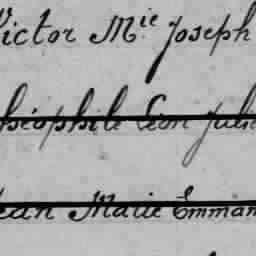 Victor Mie Joseph
Théophile Léon Jule
Jean Marie Emman